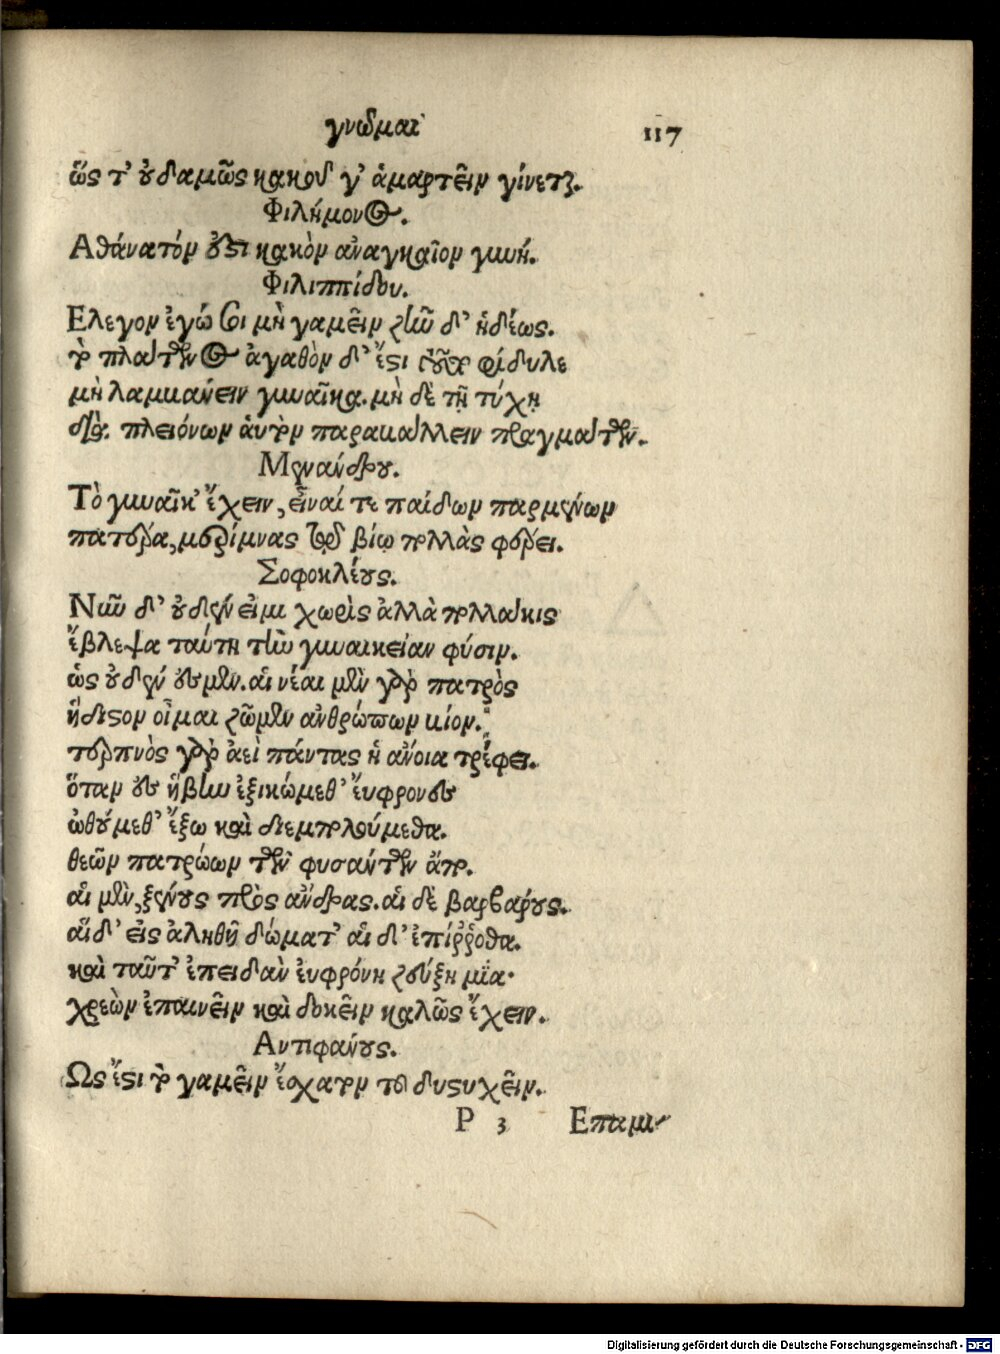 γνῶμαι 117
ὥς τ' οὐδαμῶς κακοῦ γ' ἁμαρτεῖν γίνεται.
Φιλήμονος.
Αθάνατόν ἐστι κακὸν ἀναγκαῖον γυνή.
Φιλιππίδου.
Ελεγον ἐγώ σοι μὴ γαμεῖν ζῆν δ' ἡδέως.
τὸ πλάτωνος ἀγαθὸν δ' ἔστι φείδυλε
μὴ λαμβάνειν γυναῖκα. μὴ δὲ τῇ τύχῃ
διὰ πλειόνων αὑτὸν παραβάλλειν πραγμάτων.
Μενάνδρου.
Τὸ γυναῖκ' ἔχειν, εἶναί τε παίδων παρμένων
πατέρα, μερίμνας τῷ βίῳ πολλὰς φέρει.
Σοφοκλέους.
Νῦν δ' οὐδέν εἰμι χωρὶς ἀλλὰ πολλάκις
ἔβλεψα ταύτῃ τὴν γυναικείαν φύσιν.
ὡς οὐδέν ἐσμεν. αἱ νέαι μὲν γὰρ πατρὸς
ἥδιστον οἶμαι ζῶμεν ἀνθρώπων βίον.
τερπνὸς γὰρ ἀεὶ πάντας ἡ ἄνοια τρέφει.
ὅταν ἐς ἥβην ἐξικώμεθ' ἔυφρονες
ὠθούμεθ' ἔξω καὶ διεμπολούμεθα.
θεῶν πατρώων τῶν φυσάντων ἄπο.
αἱ μὲν, ξένους πρὸς ἄνδρας. αἱ δὲ βαρβάρους.
αἵ δ' εἰς ἀληθῆ δώματ' αἱ δ' ἐπίρροθα.
καὶ ταῦτ' ἐπειδὰν ἐυφρόνη ζεύξῃ μία.
χρεὼν ἐπαινεῖν καὶ δοκεῖν καλῶς ἔχειν.
Αντιφάνους.
Ως ἔστι τὸ γαμεῖν ἔσχατον τοῦ δυστυχεῖν.
P 3 Επαμι-
Digitalisierung gefördert durch die Deutsche Forschungsgemeinschaft - DFG